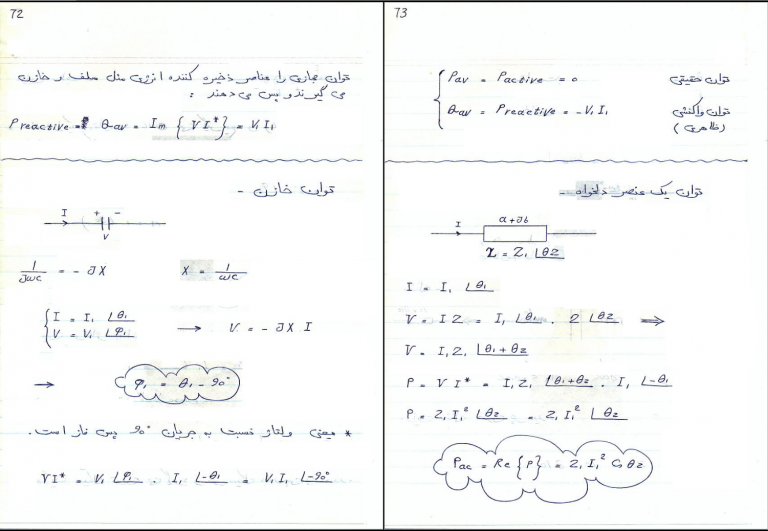 72
توان مجازی را عناصر ذخیره کننده انرژی مثل سلف و خازن
می گیرند و پس می دهند :
Preactive = Qav = Im { VI* } = V₁ I₁
توان خازن -
I + -
V
1/JωC = - JX X = 1/ωC
I = I₁ ∠θ₁
V = V₁ ∠φ₁ → V = - JX I
→ φ₁ = θ₁ - 90°
* یعنی ولتاژ نسبت به جریان 90° پس فاز است.
VI* = V₁ ∠φ₁ . I₁ ∠-θ₁ = V₁ I₁ ∠-90°
73
Pav = Pactive = 0 توان حقیقی
Qav = Preactive = - V₁ I₁ توان واکنشی
(ظاهری)
توان یک عنصر دلخواه -
I a+Jb
Z = Z₁ ∠θz
I = I₁ ∠θ₁
V = I Z = I₁ ∠θ₁ . Z ∠θz ⟹
V = I₁ Z₁ ∠θ₁ + θz
P = V I* = I₁ Z₁ ∠θ₁+θz . I₁ ∠-θ₁
P = Z₁ I₁² ∠θz = Z₁ I₁² ∠θz
Pac = Re { P } = Z₁ I₁² Cos θz